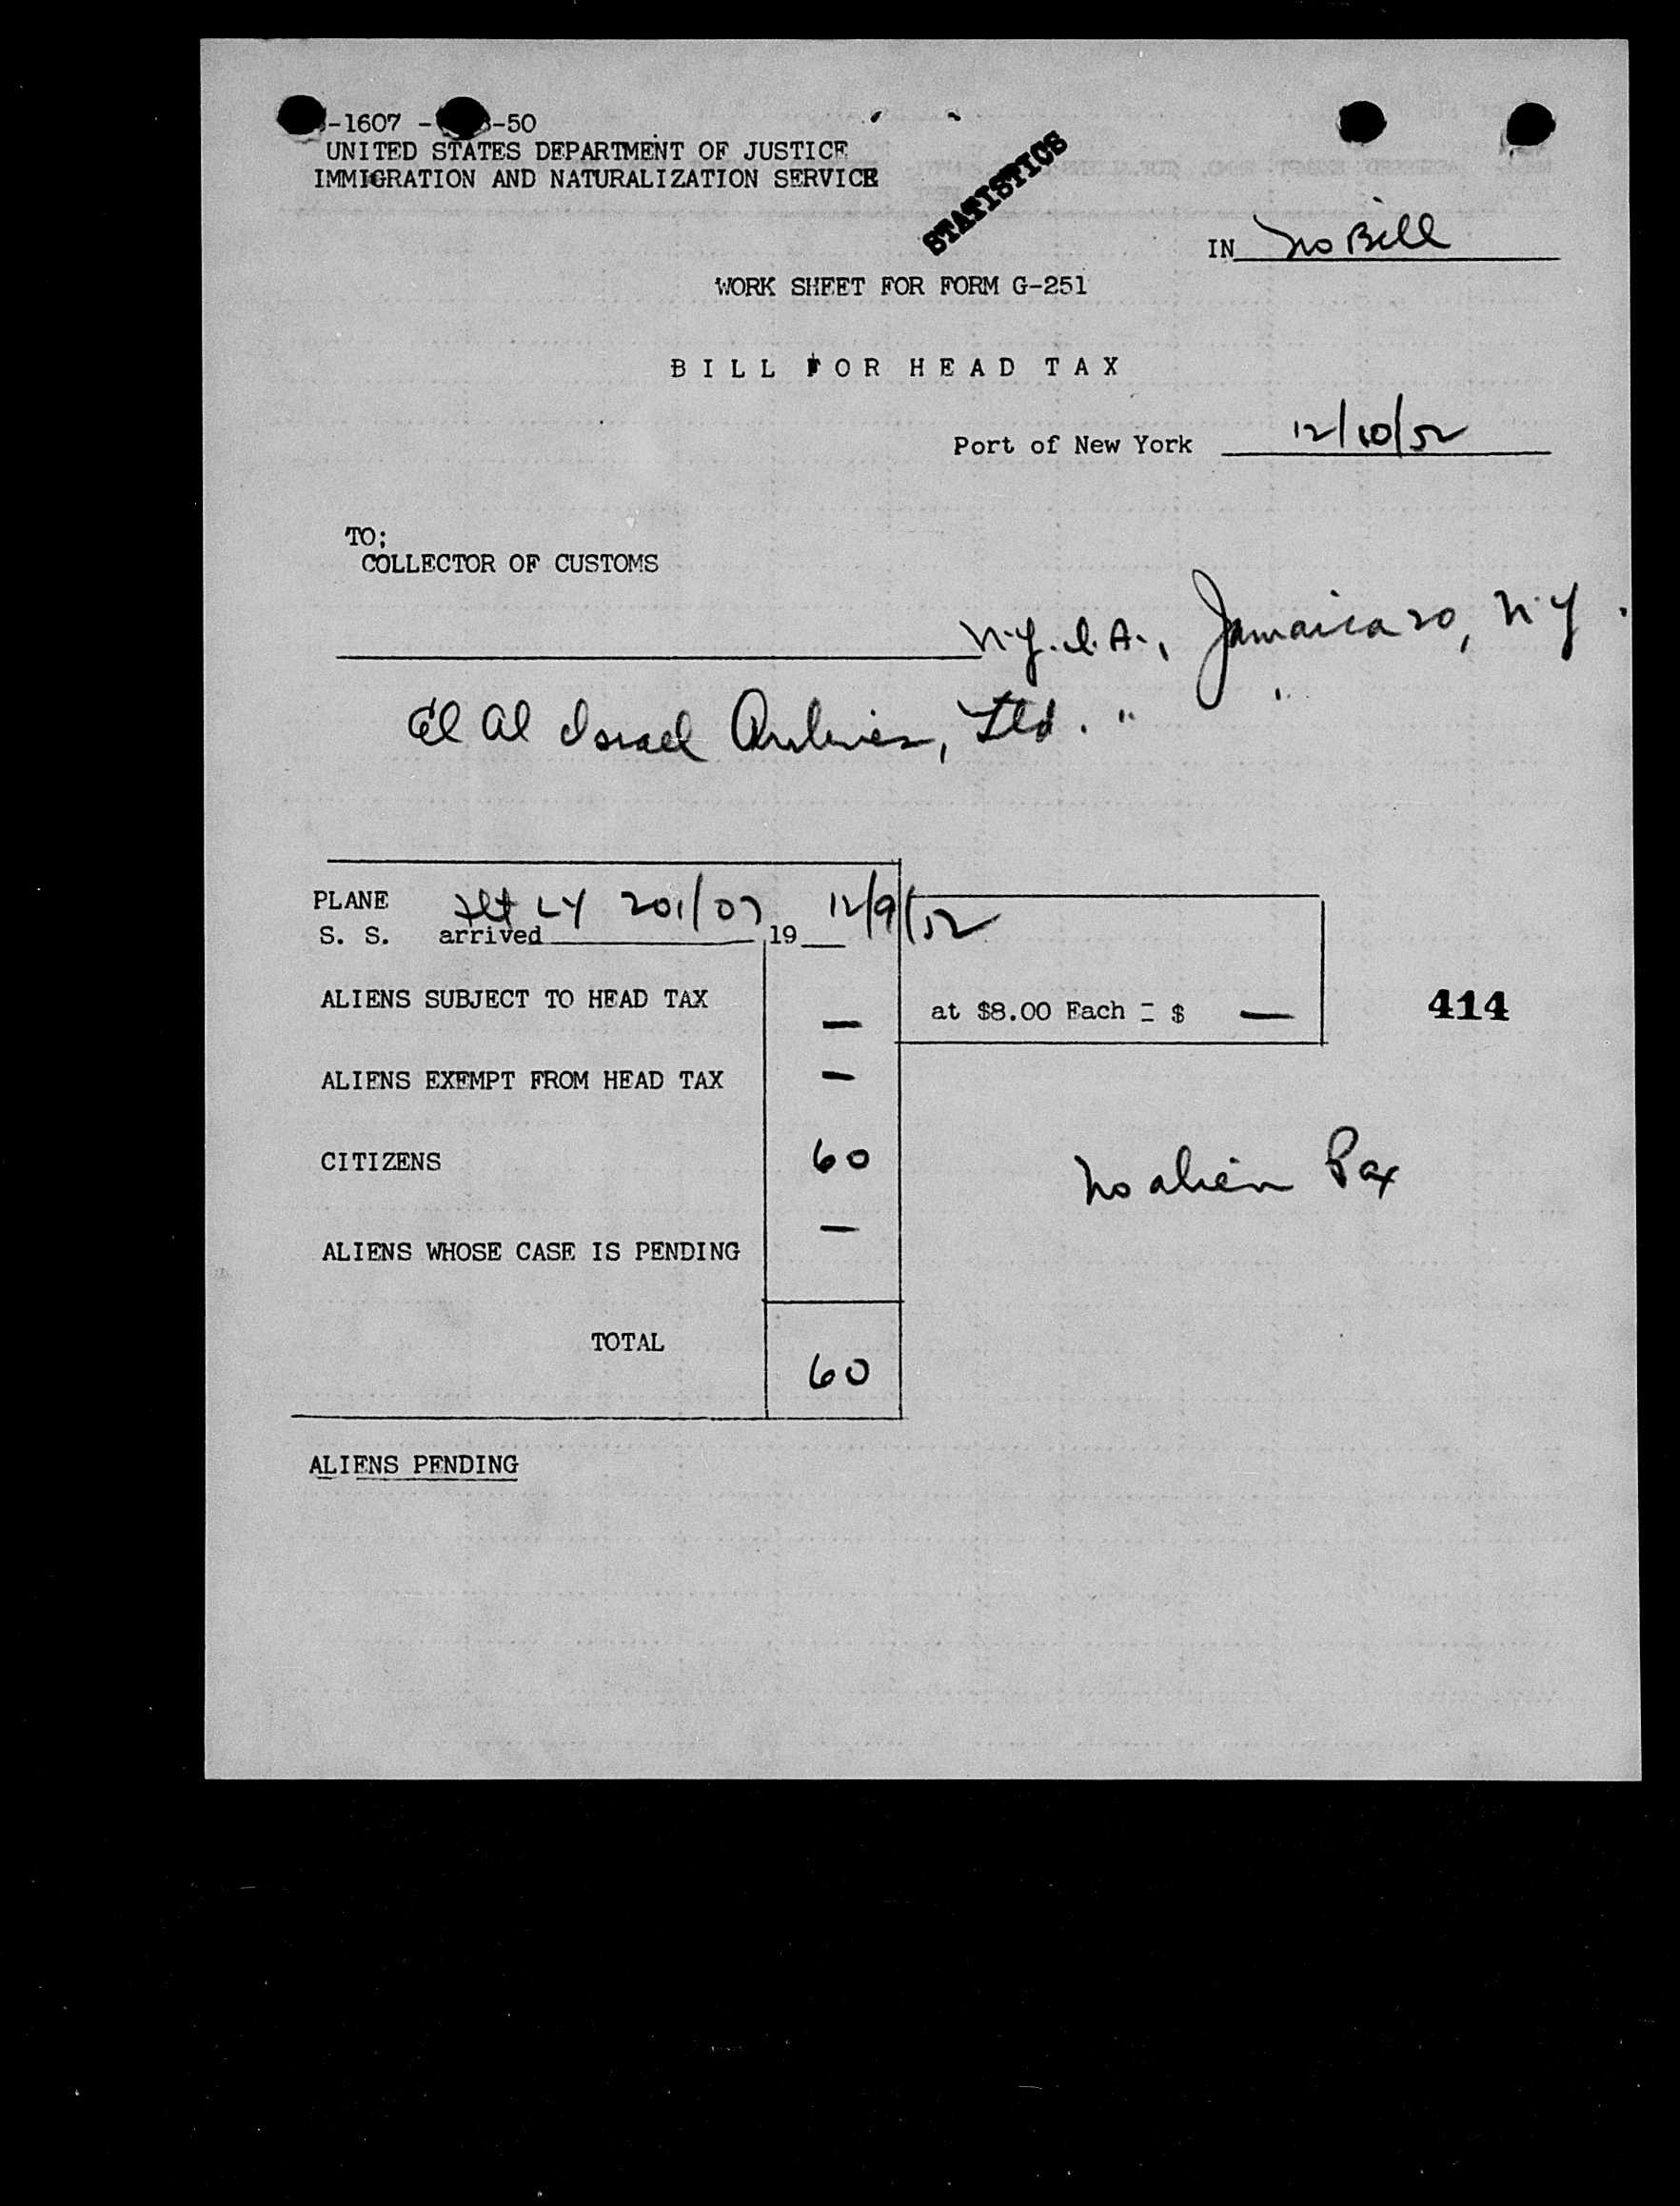 -1607 - -50
UNITED STATES DEPARTMENT OF JUSTICE
IMMIGRATION AND NATURALIZATION SERVICE
STATISTICS
IN No Bill
WORK SHEET FOR FORM G-251
BILL FOR HEAD TAX
Port of New York 12/10/52
TO;
COLLECTOR OF CUSTOMS
N.Y.I.A., Jamaica 20, N.Y.
El Al Israel Airlines, Ltd. " "
PLANE Flt LY 201/07 12/9/52
S. S. arrived 19
ALIENS SUBJECT TO HEAD TAX — at $8.00 Each = $ — 414
ALIENS EXEMPT FROM HEAD TAX —
CITIZENS 60 No alien Pax
ALIENS WHOSE CASE IS PENDING —
TOTAL 60
ALIENS PENDING